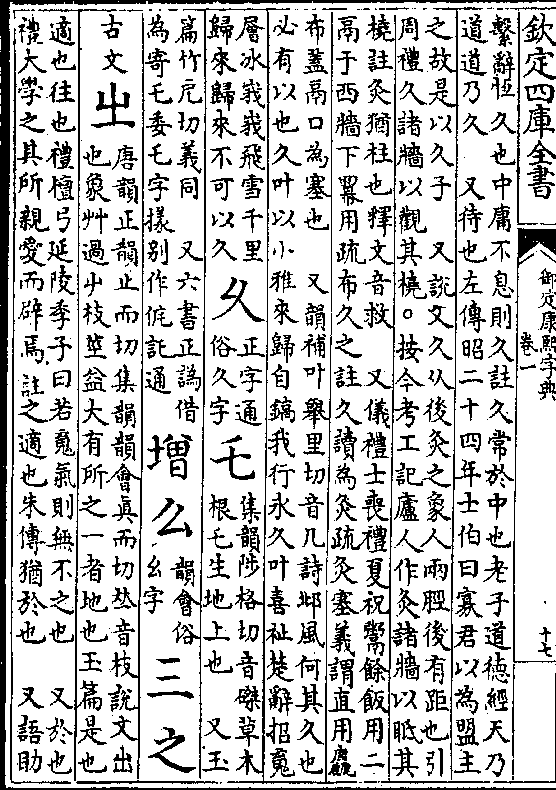 欽定四庫全書
御定康熙字典
卷一
十七
繫辭恆久也中庸不息則久註久常於中也老子道德經天乃
道道乃久　又待也左傳昭二十四年士伯曰寡君以為盟主
之故是以久子　又說文久从後灸之象人兩脛後有距也引
周禮久諸牆以觀其橈○按今考工記廬人作灸諸牆以眂其
橈註灸猶柱也釋文音救　又儀禮士喪禮夏祝鬻餘飯用二
鬲于西牆下冪用疏布久之註久讀為灸疏灸塞義謂直用麤
布蓋鬲口為塞也　又韻補叶舉里切音几詩邶風何其久也
必有以也久叶以小雅來歸自鎬我行永久叶喜祉楚辭招䰟
層冰峩峩飛雪千里
歸來歸來不可以久
乆
正字通
俗久字
乇
集韻陟格切音磔草木
根乇生地上也　又玉
篇竹戹切義同　又六書正譌借
為寄乇委乇字㨾别作侂託通
增
么
韻會俗
幺字
三
之
古文㞢
唐韻正韻止而切集韻韻會真而切𠀤音枝說文出
也象艸過屮枝莖益大有所之一者地也玉篇是也
適也往也禮檀弓延陵季子曰若䰟氣則無不之也　又於也
禮大學之其所親愛而辟焉註之適也朱傳猶於也　又語助